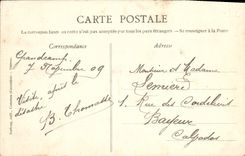 CARTE POSTALE
La correspondance au recto n'est pas acceptée par tous les pays étrangers - Se renseigner à la Poste
Correspondance
Adresse
Grandcamp
7 Septembre 09
Visite après le
désastre
B. Thomasse
Monsieur et Madame
Lemière
Rue des Cordeliers
Bayeux
Calvados